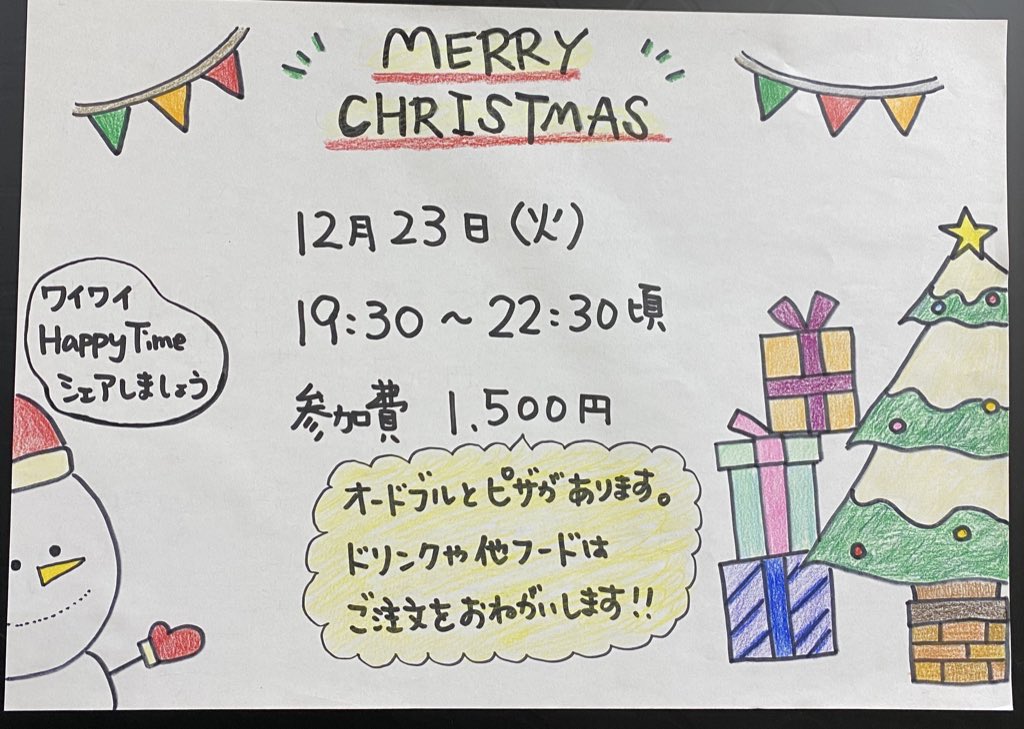 MERRY
CHRISTMAS
12月23日(火)
19:30～22:30頃
参加費 1,500円
ワイワイ
Happy Time
シェアしましょう
オードブルとピザがあります。
ドリンクや他フードは
ご注文をおねがいします!!